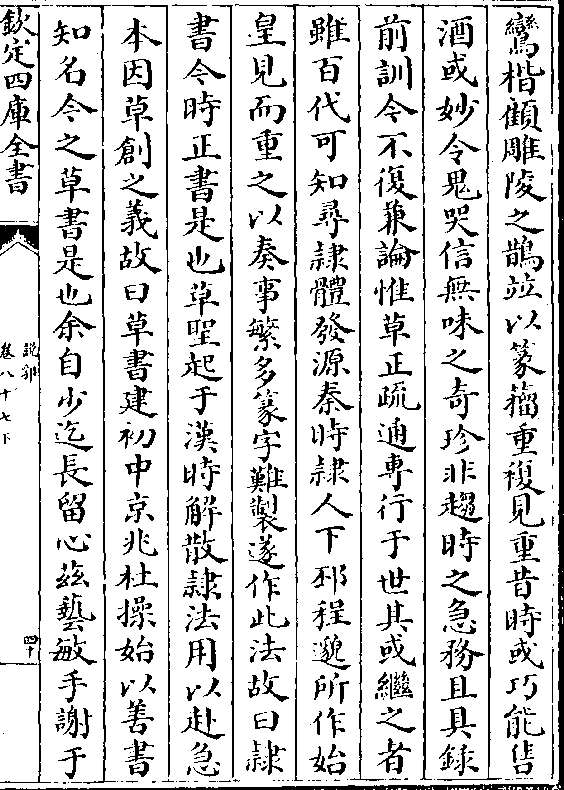 鸞楷顧雕陵之鵲竝以篆籀重複見重昔時或巧能售
酒或妙令鬼哭信無味之奇珍非趨時之急務且具錄
前訓今不復兼論惟草正疏通專行于世其或繼之者
雖百代可知尋隸體發源秦時隸人下邳程邈所作始
皇見而重之以奏事繁多篆字難製遂作此法故曰隸
書今時正書是也草聖起于漢時解散隸法用以赴急
本因草創之義故曰草書建初中京兆杜操始以善書
知名今之草書是也余自少迄長留心茲藝敏手謝于
欽定四庫全書
說郛
卷八十七下
四十